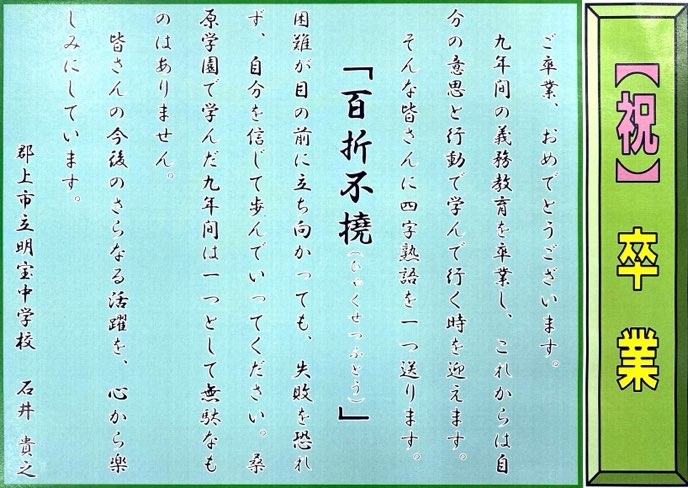 【祝】 卒業
ご卒業、おめでとうございます。
九年間の義務教育を卒業し、これからは自
分の意思と行動で学んで行く時を迎えます。
そんな皆さんに四字熟語を一つ送ります。
「百折不撓(ひゃくせつふとう)」
困難が目の前に立ち向かっても、失敗を恐れ
ず、自分を信じて歩んでいってください。桑
原学園で学んだ九年間は一つとして無駄なも
のはありません。
皆さんの今後のさらなる活躍を、心から楽
しみにしています。
郡上市立明宝中学校 石井 貴之